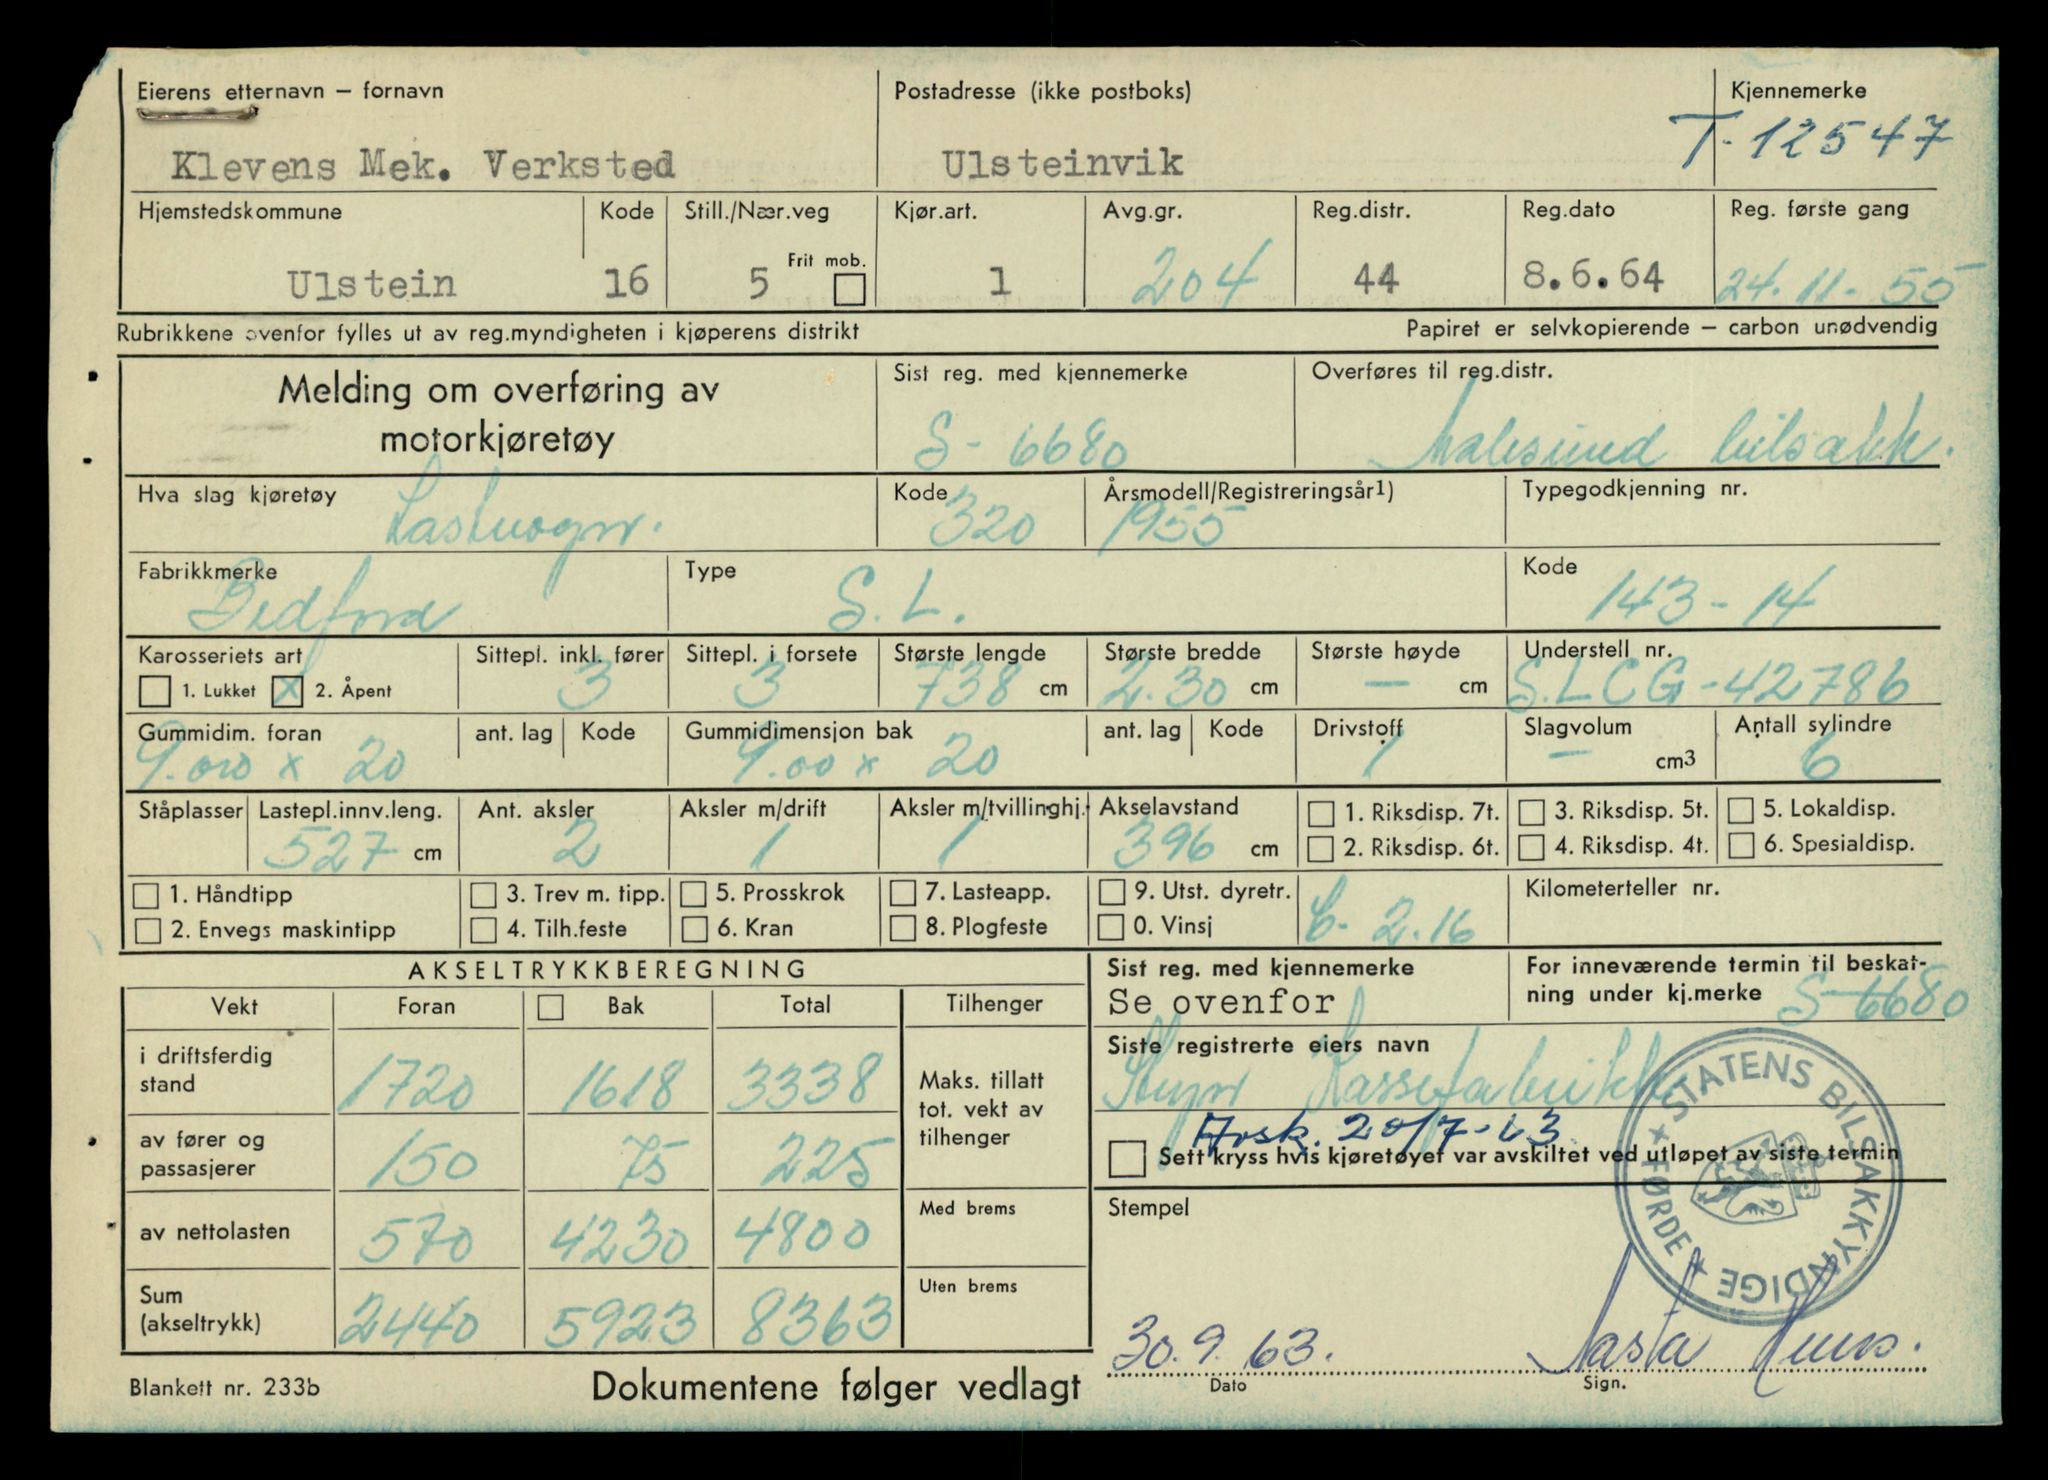 Eierens etternavn – fornavn
Postadresse (ikke postboks)
Kjennemerke
Klevens Mek. Verksted
Ulsteinvik
T-12547
Hjemstedskommune
Kode
Still./Nær.veg
Kjør.art.
Avg.gr.
Reg.distr.
Reg.dato
Reg. første gang
Ulstein
16
5
Frit mob.
1
204
44
8.6.64
24.11.55
Rubrikkene ovenfor fylles ut av reg.myndigheten i kjøperens distrikt
Papiret er selvkopierende – carbon unødvendig
Melding om overføring av
motorkjøretøy
Sist reg. med kjennemerke
S-6680
Overføres til reg.distr.
Aalesund bilsakk.
Hva slag kjøretøy
Lastvogn.
Kode
320
Årsmodell/Registreringsår1)
1955
Typegodkjenning nr.
Fabrikkmerke
Bedford
Type
S.L.
Kode
143-14
Karosseriets art
1. Lukket
x 2. Åpent
Sittepl. inkl. fører
3
Sittepl. i forsete
3
Største lengde
738 cm
Største bredde
2.30 cm
Største høyde
– cm
Understell nr.
S.LCG-42786
Gummidim. foran
9.00 x 20
ant. lag
Kode
Gummidimensjon bak
9.00 x 20
ant. lag
Kode
Drivstoff
1
Slagvolum
– cm3
Antall sylindre
6
Ståplasser
Lastepl.innv.leng.
527 cm
Ant. aksler
2
Aksler m/drift
1
Aksler m/tvillinghj.
1
Akselavstand
396 cm
1. Riksdisp. 7t.
2. Riksdisp. 6t.
3. Riksdisp. 5t.
4. Riksdisp. 4t.
5. Lokaldisp.
6. Spesialdisp.
1. Håndtipp
2. Envegs maskintipp
3. Trev m. tipp.
4. Tilh.feste
5. Prosskrok
6. Kran
7. Lasteapp.
8. Plogfeste
9. Utst. dyretr.
0. Vinsj
2.16
Kilometerteller nr.
AKSELTRYKKBEREGNING
Vekt
Foran
Bak
Total
Tilhenger
i driftsferdig
stand
1720
1618
3338
Maks. tillatt
tot. vekt av
tilhenger
av fører og
passasjerer
150
75
225
av nettolasten
570
4230
4800
Med brems
Sum
(akseltrykk)
2440
5923
8363
Uten brems
Sist reg. med kjennemerke
Se ovenfor
For inneværende termin til beskat-
ning under kj.merke
S-6680
Siste registrerte eiers navn
Kassefabrikk
Avsk. 20/7-63
Sett kryss hvis kjøretøyet var avskiltet ved utløpet av siste termin
Stempel
STATENS BILSAKKYNDIGE
FØRDE
30.9.63.
Dato
Sign.
Blankett nr. 233b
Dokumentene følger vedlagt